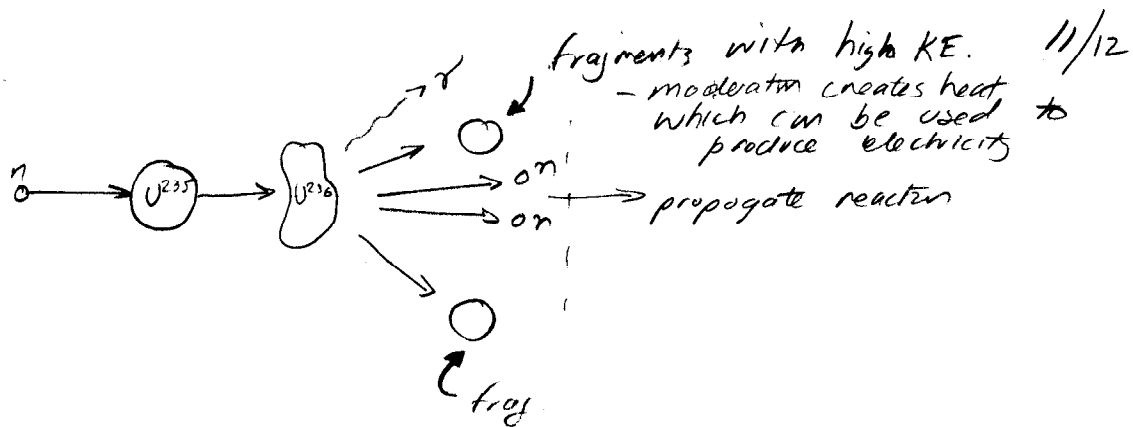 fragments with high KE. 11/12
- moderator creates heat
which can be used to
produce electricity
γ
n
U²³⁵
U²³⁶
n
n
propogate reaction
frag